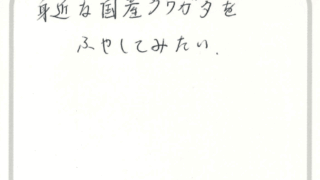 身近な国産クワガタを
ふやしてみたい.